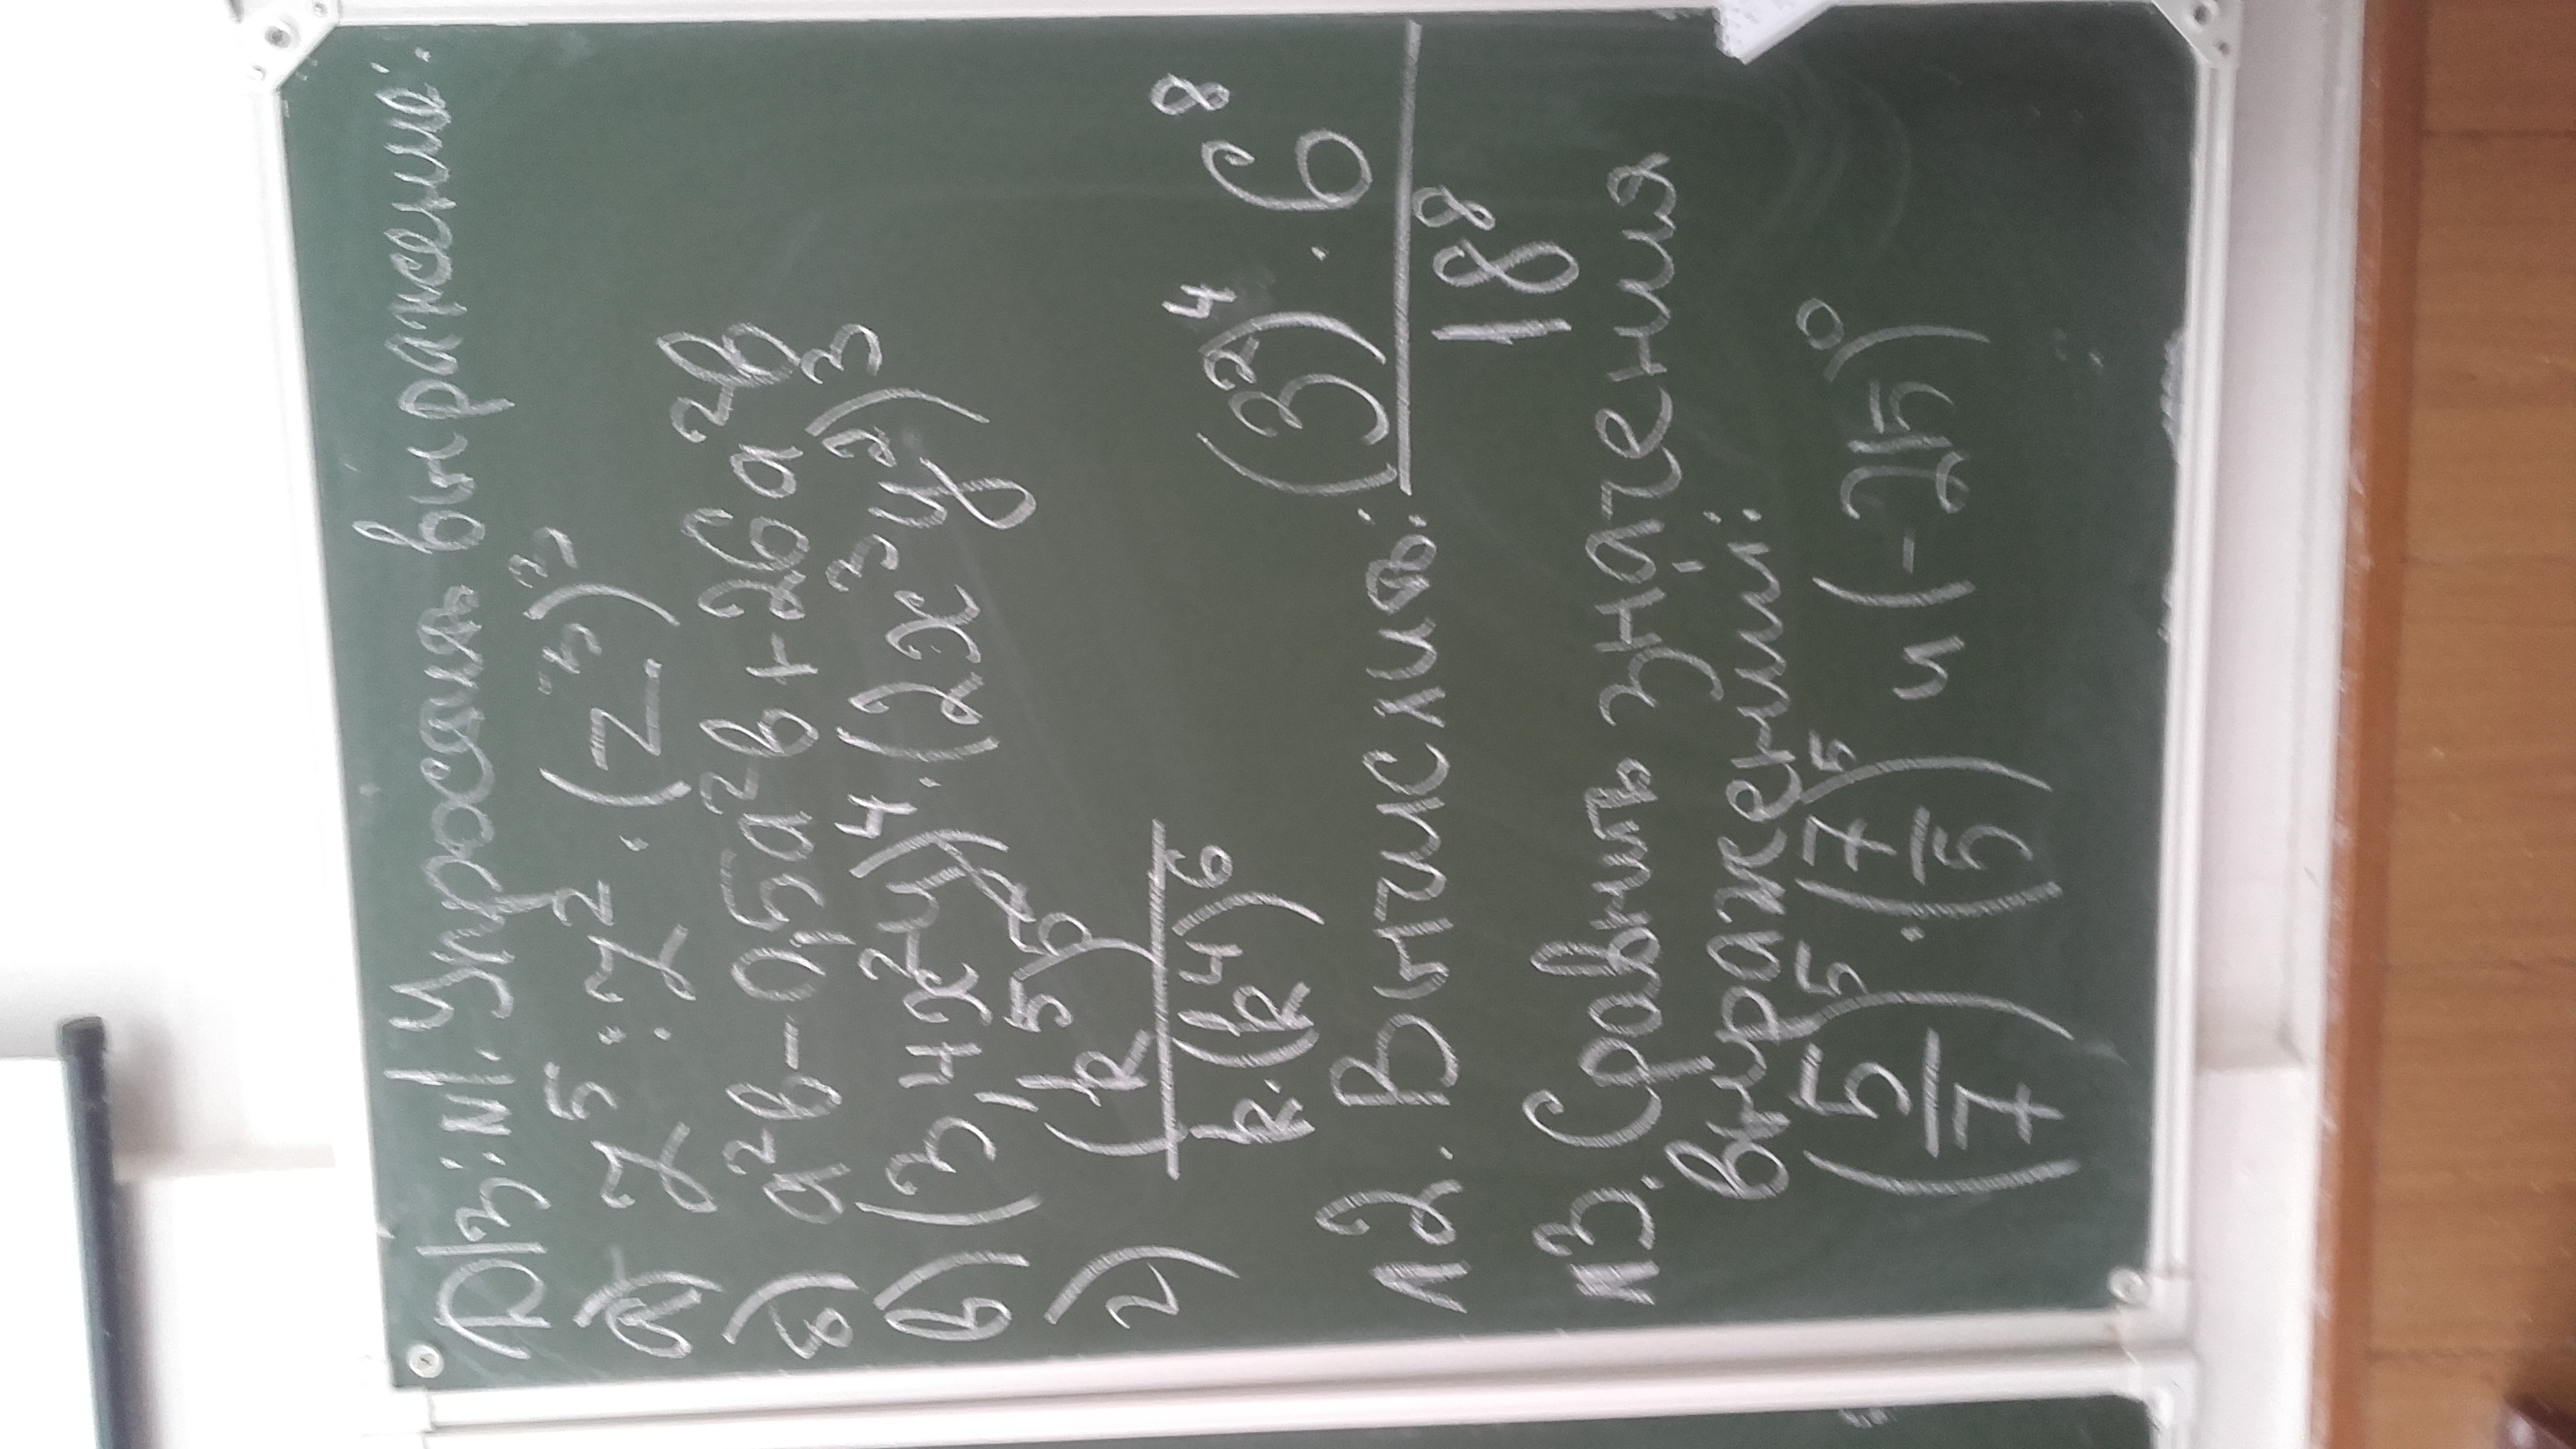 Д/З: №1. Упростить выражение:
а) z⁵ : z² · (z³)³
б) a²b - 0,5a²b + 26a²b
в) (3,4x²y)⁴ · (2x³y²)³
г) (k⁵)⁵ / k·(k⁴)⁶
№2. Вычислить: (3²)⁴ · 6⁸ / 18⁸
№3. Сравнить значения
выражений:
(5/7)⁵ · (7/5)⁵ и (-215)⁰